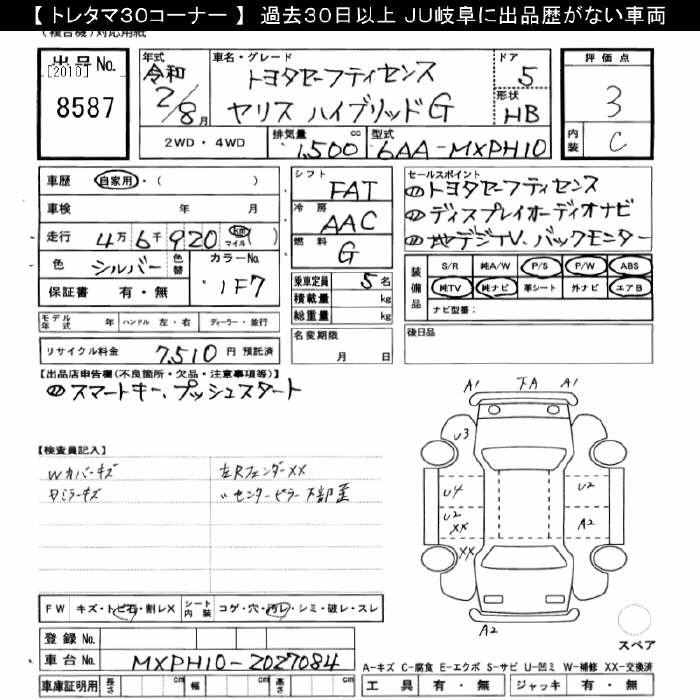 【 トレタマ30コーナー 】 過去30日以上 JU岐阜に出品歴がない車両
(複合機)対応用紙
出品No.
[2010]
8587
年式
令和
2/8月
車名・グレード
トヨタセーフティセンス
ヤリス ハイブリッドG
ドア
5
形状
HB
評価点
3
内装
C
2WD・4WD
排気量
1,500 cc
型式
6AA-MXPH10
車歴 自家用・( )
車検 年 月
走行 4万6千920 km マイル( )
色 シルバー 色替
カラーNo.
1F7
保証書 有・無
シフト
FAT
冷房
AAC
燃料
G
乗車定員 5名
積載量 kg
総重量 kg
セールスポイント
⑦トヨタセーフティセンス
⑦ディスプレイオーディオナビ
⑦地デジTV、バックモニター
装備品
S/R 純A/W P/S P/W ABS
純TV 純ナビ 革シート 外ナビ エアB
ナビ型番:
モデル年式 年 ハンドル 左・右 ディーラー・並行
名変期限
月 日
後日品
リサイクル料金 7,510 円 預託済
【出品店申告欄(不良箇所・欠品・注意事項等)】
⑦スマートキー、プッシュスタート
【検査員記入】
Wカバーキズ
Rミラーキズ
左RフェンダーXX
〃センターピラー下部歪
A1 下A A1
U3
U4
U2
XX
U2
A2
XX
A2
スペア
FW キズ・トビ石・割レX
シート内装 コゲ・穴・汚レ・シミ・破レ・スレ
登録No.
車台No. MXPH10-2027084
車庫証明用 長さ cm 幅 cm 高さ cm
A-キズ C-腐食 E-エクボ S-サビ U-凹ミ W-補修 XX-交換済
工具 有・無 ジャッキ 有・無